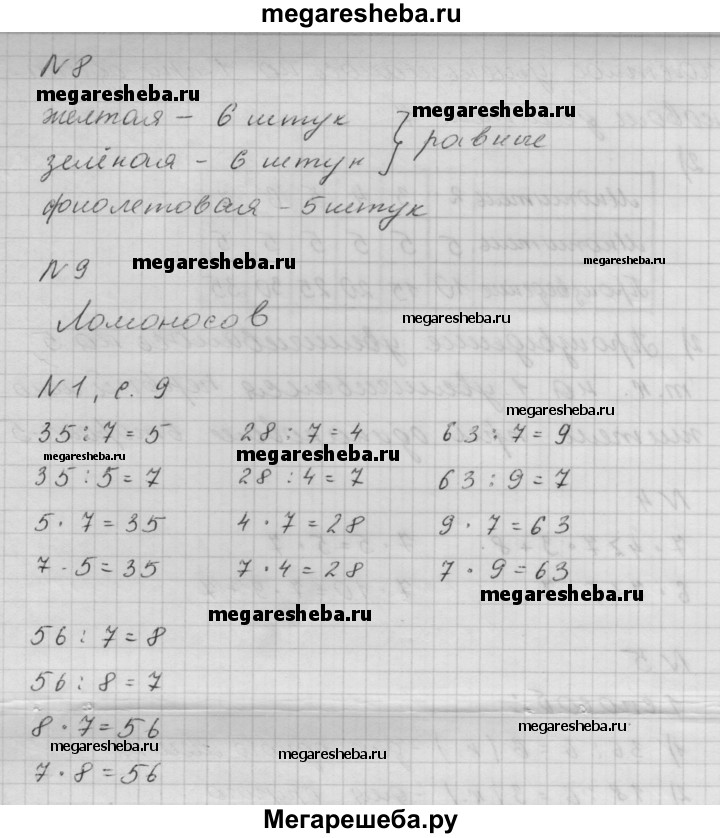 megaresheba.ru
N 8
megaresheba.ru
желтая - 6 штук
megaresheba.ru
зелёная - 6 штук } равные
фиолетовая - 5 штук
N 9
megaresheba.ru
megaresheba.ru
Ломоносов
megaresheba.ru
N 1, с. 9
megaresheba.ru
35 : 7 = 5 28 : 7 = 4 63 : 7 = 9
megaresheba.ru megaresheba.ru
35 : 5 = 7 28 : 4 = 7 63 : 9 = 7
5 · 7 = 35 4 · 7 = 28 9 · 7 = 63
7 · 5 = 35 7 · 4 = 28 7 · 9 = 63
megaresheba.ru
megaresheba.ru
56 : 7 = 8
56 : 8 = 7
8 · 7 = 56
megaresheba.ru
megaresheba.ru
megaresheba.ru
7 · 8 = 56
Мегарешеба.ру